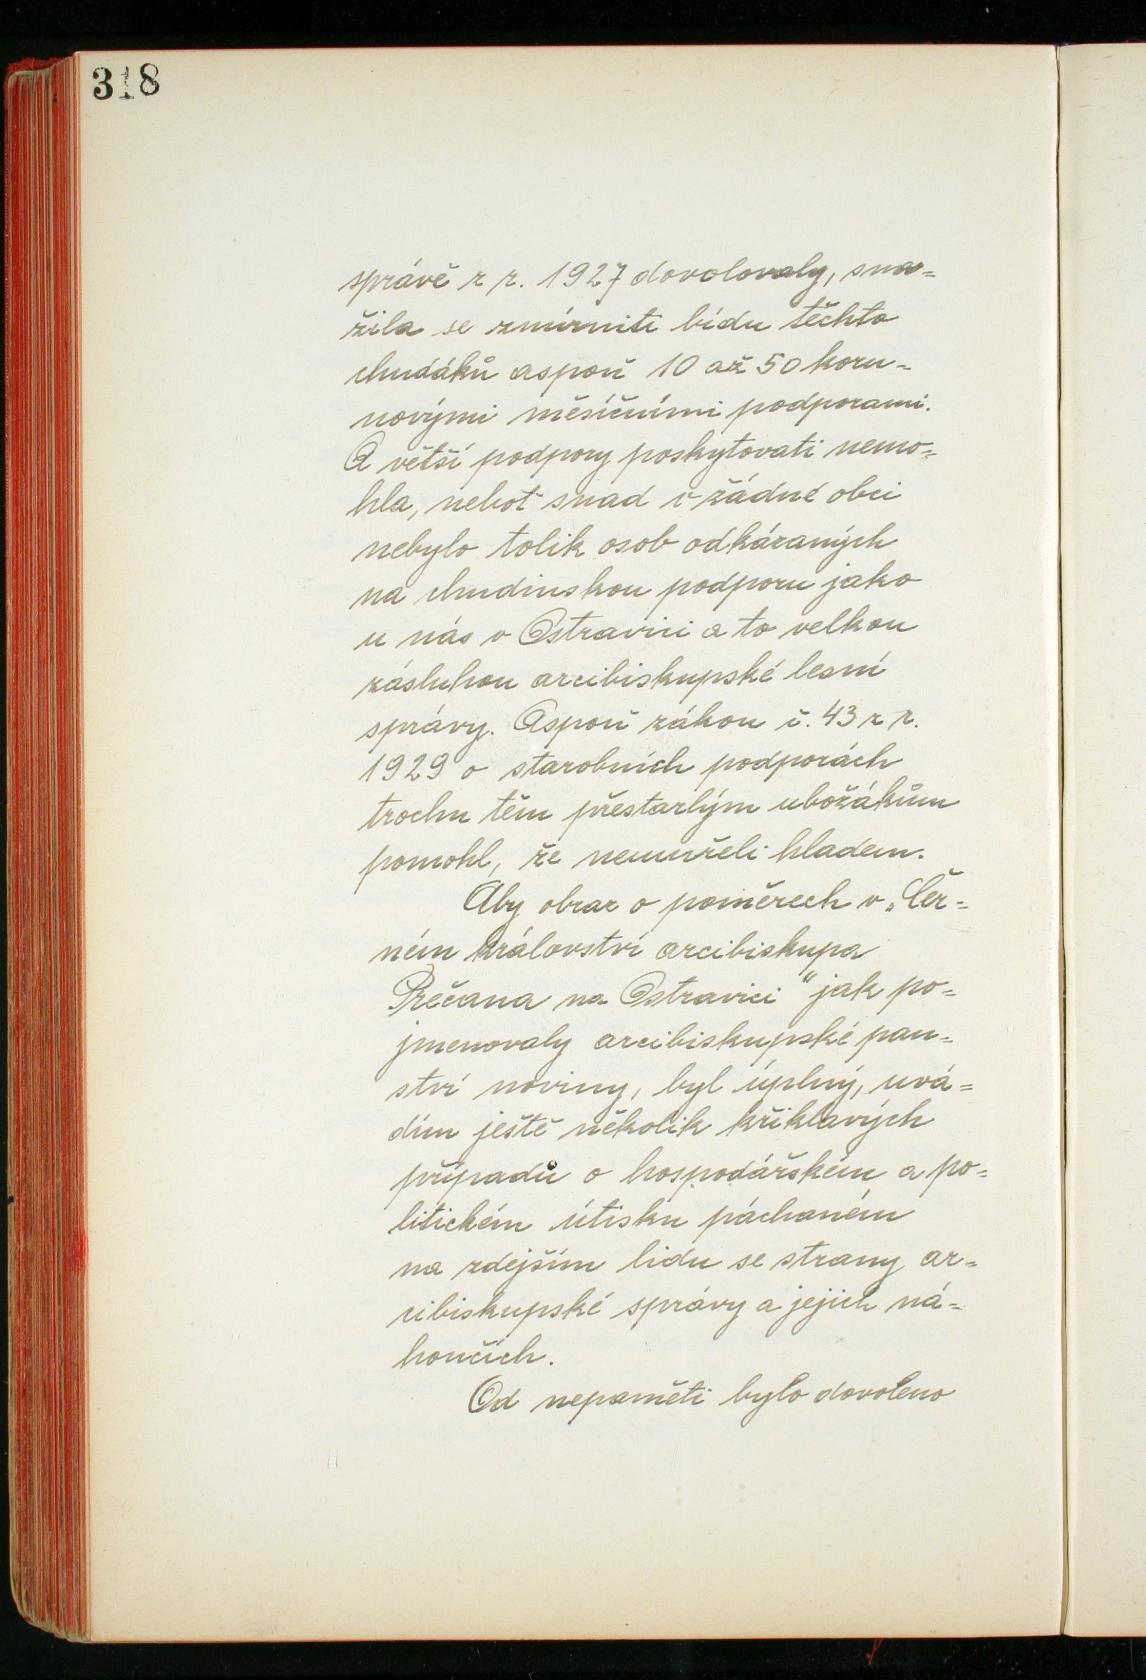 318
správě z r. 1927 dovolovaly, sna=
žila se zmírniti bídu těchto
chudáků aspoň 10 až 50 koru=
novými měsíčními podporami.
A větší podpory poskytovati nemo=
hla, neboť snad v žádné obci
nebylo tolik osob odkázaných
na chudinskou podporu jako
u nás v Ostravici a to velkou
zásluhou arcibiskupské lesní
správy. Aspoň zákon č. 43 z r.
1929 o starobních podporách
trochu těm přestarlým ubožákům
pomohl, že nemuřeli hladem.
Aby obraz o poměrech v „Čer=
ném království arcibiskupa
Prečana na Ostravici" jak po=
jmenovaly arcibiskupské pan=
ství noviny, byl úplný, uvá=
dím ještě několik křiklavých
případů o hospodářském a po=
litickém útisku páchaném
na zdejším lidu se strany ar=
cibiskupské správy a jejich ná=
hončích.
Od nepaměti bylo dovoleno